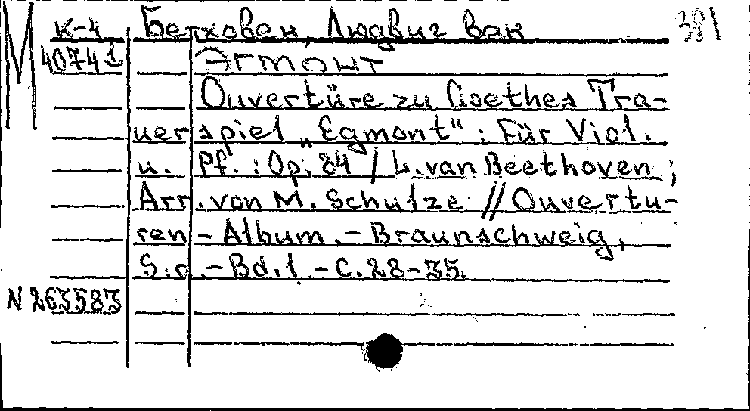 М к-4 Бетховен, Людвиг ван 381
40741 Эгмонт
Ouvertüre zu Goethes Tra-
uerspiel „Egmont“ : Für Viol.
u. Pf. : Op. 84 / L. van Beethoven ;
Arr. von M. Schultze // Ouvertu-
ren - Album. - Braunschweig,
S.a. - Bd. 1. - С. 28-35.
N 263583